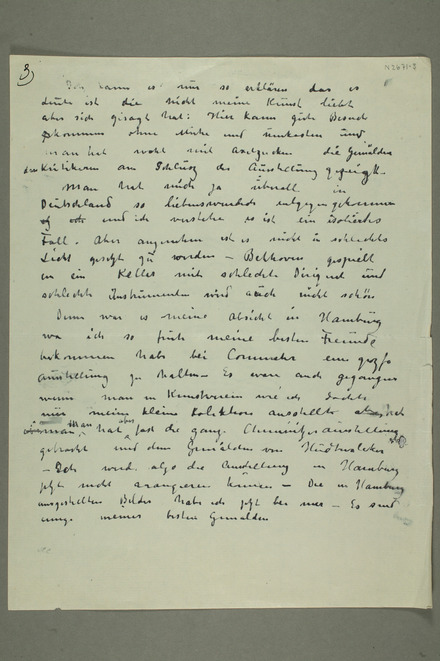 N 2671-3
3)
kann es nur so erklären das es
ist die nicht meine Kunst liebt
aber sich gesagt hat: Hier kann gute Besuch
kommen ohne Mühe und unkosten und
man hat wohl mit die Gemälden
den Kritikern am Schlusz der Ausstellung gezeigt.
Man hat mich ja überall in
Deutschland so liebenswürdig entgegengekommen
und ich verstehe es ist ein isoliertes
Fall. Aber angenehm ist es nicht in schlechts
Licht gesetzt zu werden – Bethoven gespielt
in ein Keller mit schlecht Dirigent und
schlechte Instrumenten wird auch nicht schön
Denn war es meine absicht in Hamburg
wo ich so früh meine besten Freunde
bekommen habe bei Commeter ein grosse
ausstellung zu halten – Es wäre auch gegangen
wenn man in Kunstverein wie ich dachte
nur meine kleine Kolektion ausstellte
man hat aber fast die ganz Chemnitzerausstellung
gebracht und dem Gemälden von
– wird also die Ausstellung in Hamburg
jetzt nicht arrangieren können – Die in Hamburg
ausgestellten Bilder habe ich jetzt bei mir – Es sind
einige meiner besten Gemälden